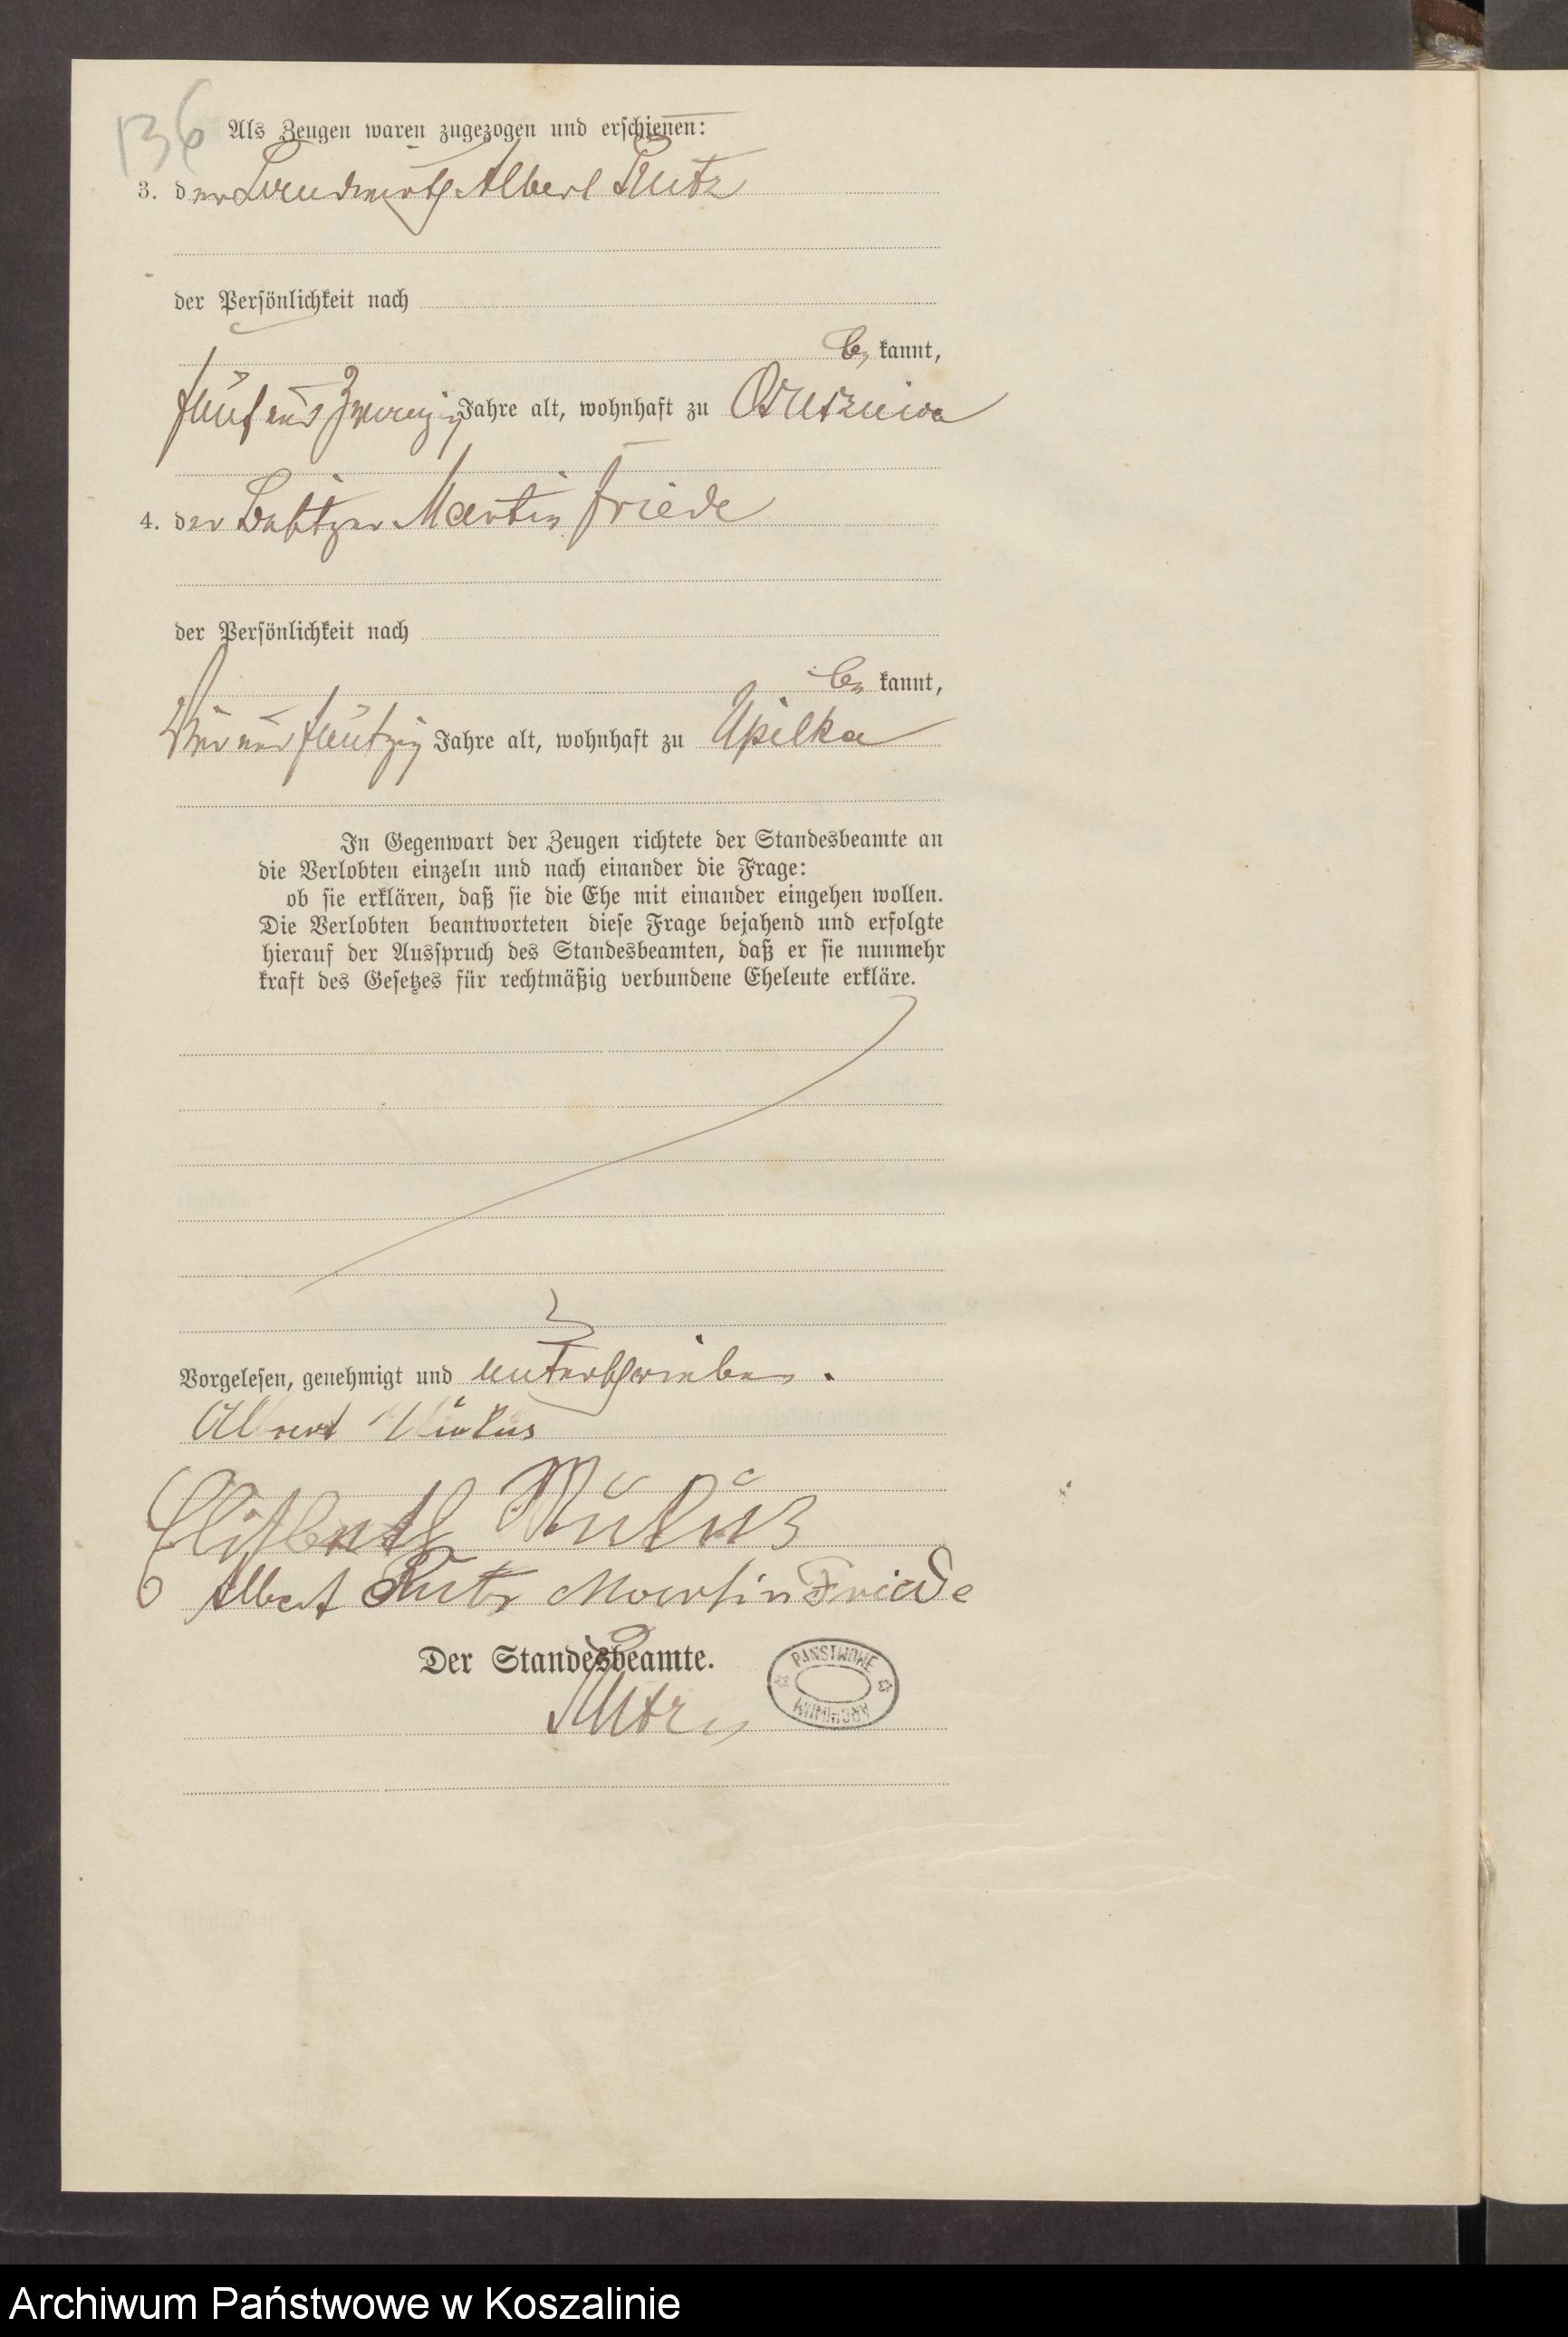 136
Als Zeugen waren zugezogen und erschienen:
3. der Landwirth Albert Rutz
der Persönlichkeit nach
be kannt,
fünf und zwanzig Jahre alt, wohnhaft zu Osusznica
4. der Besitzer Martin Friede
der Persönlichkeit nach
be kannt,
vier und fünfzig Jahre alt, wohnhaft zu Upilka
In Gegenwart der Zeugen richtete der Standesbeamte an
die Verlobten einzeln und nach einander die Frage:
ob sie erklären, daß sie die Ehe mit einander eingehen wollen.
Die Verlobten beantworteten diese Frage bejahend und erfolgte
hierauf der Ausspruch des Standesbeamten, daß er sie nunmehr
kraft des Gesetzes für rechtmäßig verbundene Eheleute erkläre.
Vorgelesen, genehmigt und unterschrieben.
Albert
Albert Rutz Martin Friede
Der Standesbeamte.
Rutz
PAŃSTWOWE ARCHIWUM
Archiwum Państwowe w Koszalinie